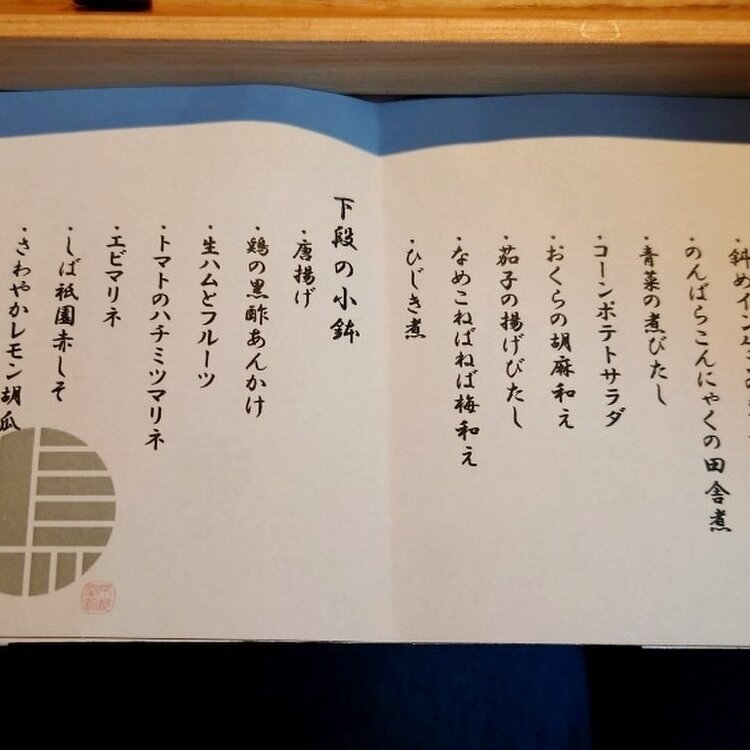 のんばらこんにゃくの田舎煮
・青菜の煮びたし
・コーンポテトサラダ
・おくらの胡麻和え
・茄子の揚げびたし
・なめこねばねば梅和え
・ひじき煮
下段の小鉢
・唐揚げ
・鶏の黒酢あんかけ
・生ハムとフルーツ
・トマトのハチミツマリネ
・エビマリネ
・しば祇園赤しそ
・さわやかレモン胡瓜